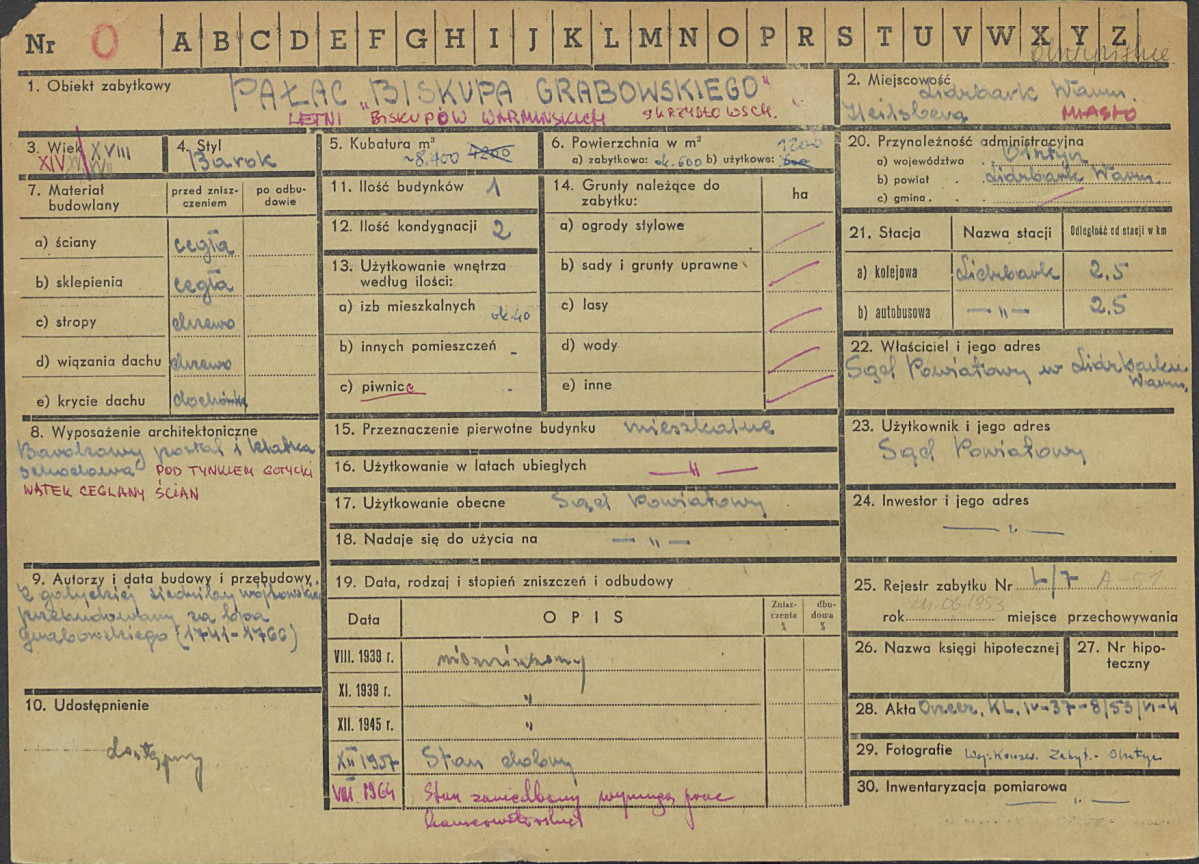 Nr 0 A B C D E F G H I J K L M N O P R S T U V W X Y Z
1. Obiekt zabytkowy
PAŁAC „BISKUPA GRABOWSKIEGO"
LETNI BISKUPÓW WARMIŃSKICH SKRZYDŁO WSCH.
2. Miejscowość
Lidzbark Warm.
Heilsberg MIASTO
3. Wiek XVIII
XIV XV/XVII
4. Styl
Barok
5. Kubatura m³
~8.400 4200
6. Powierzchnia w m² 1200
a) zabytkowa: ok. 600 b) użytkowa: 600
20. Przynależność administracyjna
a) województwo Olsztyn
b) powiat Lidzbark Warm.
c) gmina
7. Materiał budowlany
przed znisz-
czeniem
po odbu-
dowie
a) ściany cegła
b) sklepienia cegła
c) stropy drzewo
d) wiązania dachu drzewo
e) krycie dachu dachówka
11. Ilość budynków 1
12. Ilość kondygnacji 2
13. Użytkowanie wnętrza
według ilości:
a) izb mieszkalnych ok. 40
b) innych pomieszczeń -
c) piwnice
14. Grunty należące do
zabytku:
ha
a) ogrody stylowe
b) sady i grunty uprawne
c) lasy
d) wody
e) inne
21. Stacja Nazwa stacji Odległość od stacji w km
a) kolejowa Lidzbark 2,5
b) autobusowa — „ — 2,5
22. Właściciel i jego adres
Sąd Powiatowy w Lidzbarku
Warm.
8. Wyposażenie architektoniczne
Barokowy portal i klatka
schodowa POD TYNKIEM GOTYCKI
WĄTEK CEGLANY ŚCIAN
15. Przeznaczenie pierwotne budynku mieszkalne
16. Użytkowanie w latach ubiegłych — „ —
17. Użytkowanie obecne Sąd Powiatowy
18. Nadaje się do użycia na — „ —
23. Użytkownik i jego adres
Sąd Powiatowy
24. Inwestor i jego adres
— „ —
9. Autorzy i data budowy i przebudowy
Z gotyckiej siedziby wójtowskiej
przebudowany za bpa
Grabowskiego (1741-1766)
19. Data, rodzaj i stopień zniszczeń i odbudowy
Data OPIS
Znisz-
czenia
%
dbu-
dowa
%
VIII. 1939 r. niezniszczony
XI. 1939 r. „
XII. 1945 r. „
XII 1957 Stan dobry
VIII. 1964 Stan zaniedbany wymaga prac
konserwatorskich
25. Rejestr zabytku Nr L/7 A-51
24.06.1953
rok miejsce przechowywania
26. Nazwa księgi hipotecznej
27. Nr hipo-
teczny
10. Udostępnienie
dostępny
28. Akta Orzecz. KL. IV-37-8/53/VI-4
29. Fotografie Woj. Konserw. Zabyt. - Olsztyn
30. Inwentaryzacja pomiarowa
— „ —